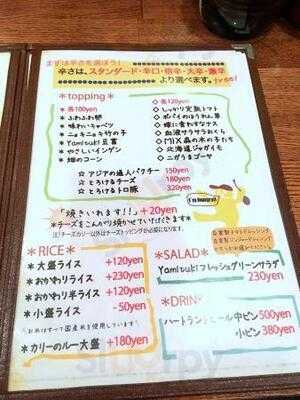 まずは辛さを選ぼう!
辛さは、スタンダード・辛口・倍辛・大辛・激辛
より選べます。
*topping*
*各100yen
◇ ふわふわ卵
◇ 味わいキャベツ
◇ ニョキニョキ竹の子
◇ Yamitsuki豆富
◇ やさしいインゲン
◇ 畑のコーン
◇各120yen
◇ しっかり完熟トマト
◇ ポパイのほうれん草
◇ 畑に食わすなナス
◇ 血液サラサラおくら
◇ 森の木の子たち
◇ 北海道ジャガイモ
◇ ニガうまゴーヤ
☆ アジアの達人パクチー 150yen
☆ とろけるチーズ 180yen
☆ とろけるトロ豚 320yen
"焼きいれます!!" +20yen
チーズをこんがり焼かせていただきます
I'm hungry!
*RICE*
*大盛ライス +120yen
*おかわりライス +230yen
*おかわり半ライス +120yen
*小盛ライス -50yen
*お米はすべて国産米を使用しています
*カリーのルー大盛 +180yen
*SALAD*
Yamitsukiフレッシュグリーンサラダ
230yen
*DRINK
ハートランドビール中ビン 500yen
小ビン 380yen